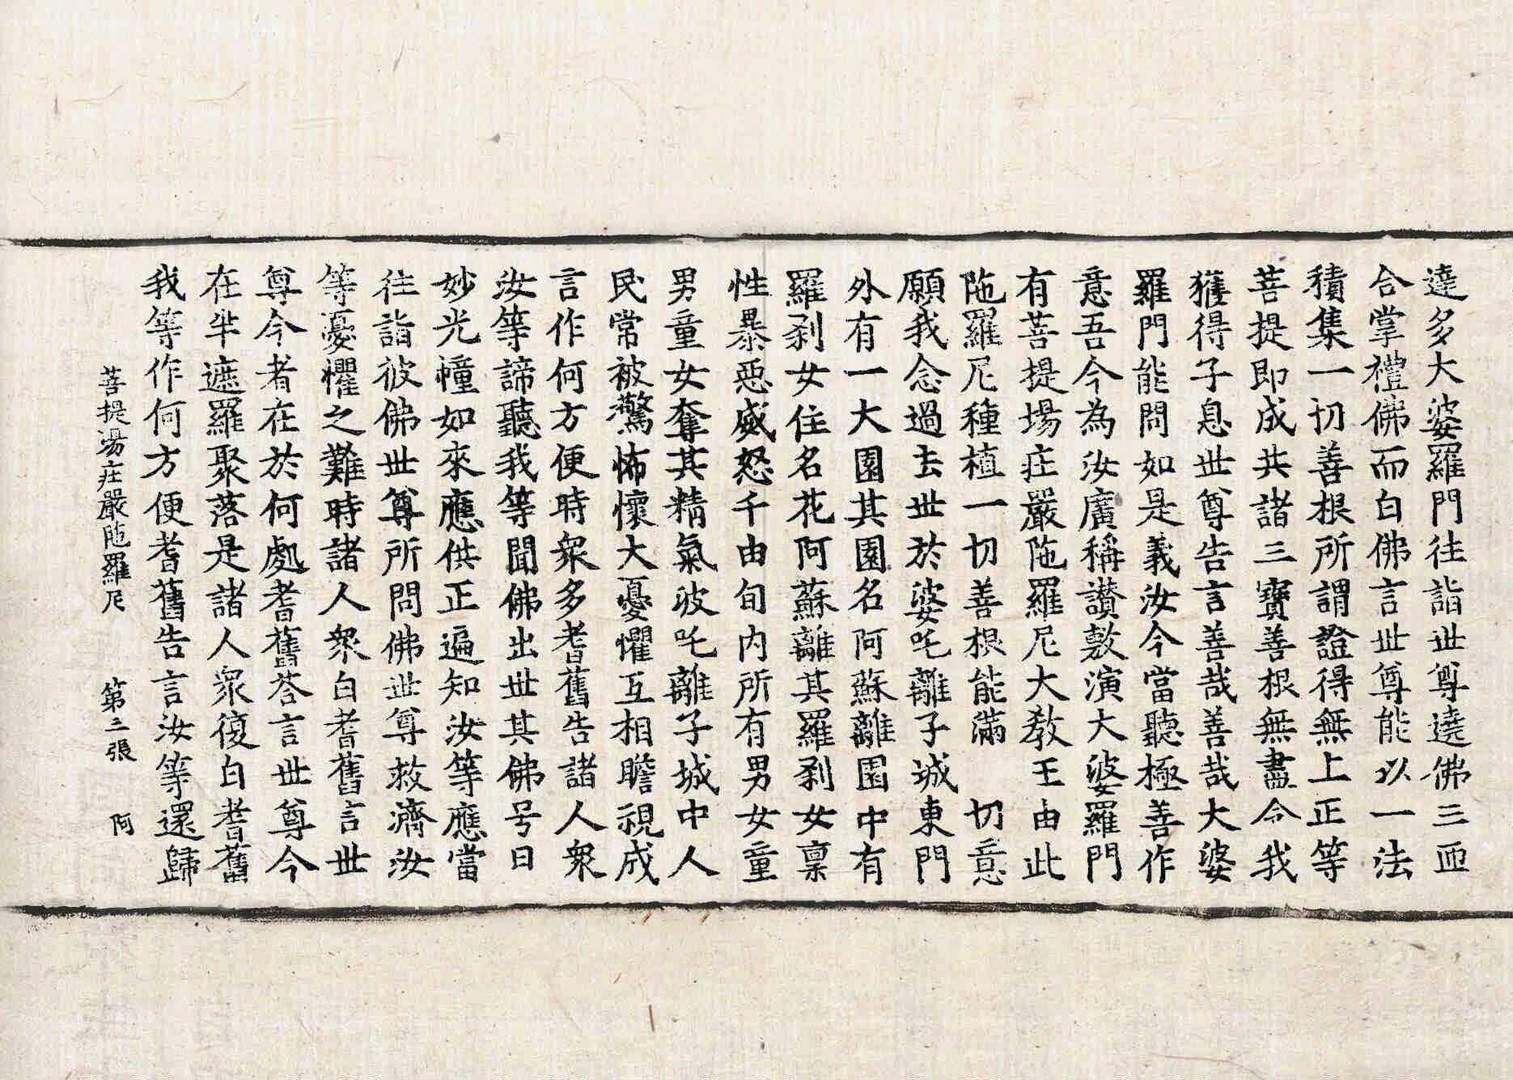 達多大婆羅門往詣世尊遶佛三帀
合掌禮佛而白佛言世尊能以一法
積集一切善根所謂證得無上正等
菩提即成共諸三寶善根無盡令我
獲得子息世尊告言善哉善哉大婆
羅門能問如是義汝今當聽極善作
意吾今為汝廣稱讚敷演大婆羅門
有菩提場庄嚴陁羅尼大教王由此
陁羅尼種植一切善根能滿 切意
願我念過去世於婆吒離子城東門
外有一大園其園名阿蘇離園中有
羅剎女住名花阿蘇離其羅剎女稟
性暴惡威怒千由旬內所有男女童
男童女奪其精氣彼吒離子城中人
民常被驚怖懷大憂懼互相瞻視成
言作何方便時衆多耆舊告諸人衆
汝等諦聽我等聞佛出世其佛号曰
妙光幢如來應供正遍知汝等應當
往詣彼佛世尊所問佛世尊救濟汝
等憂懼之難時諸人衆白耆舊言世
尊今者在於何處耆舊荅言世尊今
在半遮羅聚落是諸人衆復白耆舊
我等作何方便耆舊告言汝等還歸
菩提場庄嚴陁羅尼 第二張 阿